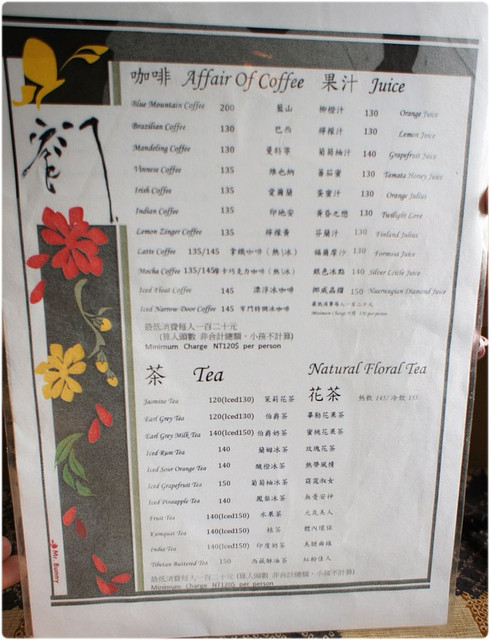 咖啡 Affair Of Coffee 果汁 Juice
Blue Mountain Coffee 200 藍山 柳橙汁 130 Orange Juice
Brazilian Coffee 130 巴西 檸檬汁 130 Lemon Juice
Mandeling Coffee 130 曼特寧 葡萄柚汁 140 Grapefruit Juice
Vinness Coffee 135 維也納 蕃茄蜜 130 Tamata Honey Juice
Irish Coffee 135 愛爾蘭 蛋蜜汁 130 Orange Julius
Indian Coffee 135 印地安 黃昏之戀 130 Twilight Love
Lemon Zinger Coffee 135 檸檬黃 芬蘭汁 130 Finland Julius
Latte Coffee 135/145 拿鐵咖啡（熱\冰） 福爾摩沙 130 Formosa Juice
Mocha Coffee 135/145 摩卡巧克力咖啡（熱\冰） 銀色冰點 140 Silver Licle Juice
Iced Float Coffee 145 漂浮冰咖啡 挪威晶鑽 150 Nuarwegian Diamond Juice
Iced Narrow-Door Coffee 145 窄門特調冰咖啡
最低消費每人一百二十元
Minimum Charge NT 120 per person
最低消費每人一百二十元
(算人頭數 非合計總額，小孩不計算)
Minimum Charge NT120$ per person
茶 Tea Natural Floral Tea
花茶 熱飲 145/冷飲 155
Jasmine Tea 120(Iced130) 茉莉花茶
Earl Grey Tea 120(Iced130) 伯爵茶 華勒花果茶
Earl Grey Milk Tea 140(Iced150) 伯爵奶茶 蜜桃花果茶
Iced Rum Tea 140 蘭姆冰茶 玫瑰花茶
Iced Sour Orange Tea 140 酸橙冰茶 熱帶風情
Iced Grapefruit Tea 150 葡萄柚冰茶 窈窕淑女
Iced Pineapple Tea 140 鳳梨冰茶
Fruit Tea 140(Iced150) 水果茶
Kumquat Tea 140(Iced150) 桔茶
India Tea 140(Iced150) 印度奶茶
Tibetan Buttered Tea 150 西藏酥油茶
最低消費每人一百二十元 (算人頭數 非合計總額，小孩不計算)
Minimum Charge NT120$ per person